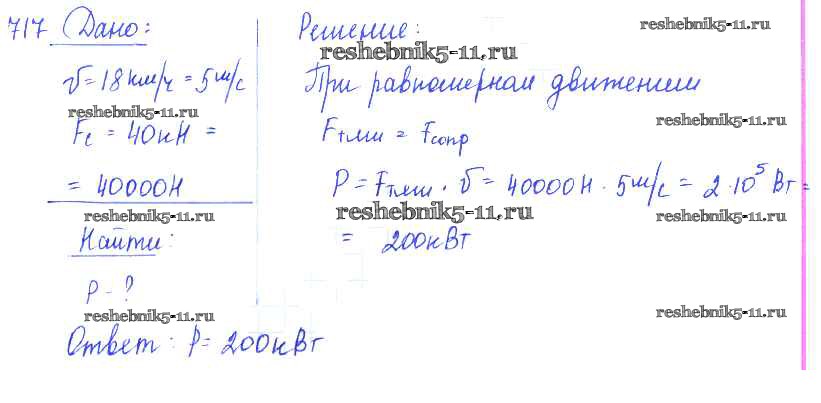 717 Дано:
v = 18 км/ч = 5 м/с
Fc = 40 кН =
= 40000 Н
Найти:
P - ?
Решение:
При равномерном движении
Fтяги = Fсопр
P = Fтяги · v = 40000 Н · 5 м/с = 2 · 10⁵ Вт =
= 200 кВт
Ответ: P = 200 кВт
reshebnik5-11.ru
reshebnik5-11.ru
reshebnik5-11.ru
reshebnik5-11.ru
reshebnik5-11.ru
reshebnik5-11.ru
reshebnik5-11.ru
reshebnik5-11.ru
reshebnik5-11.ru